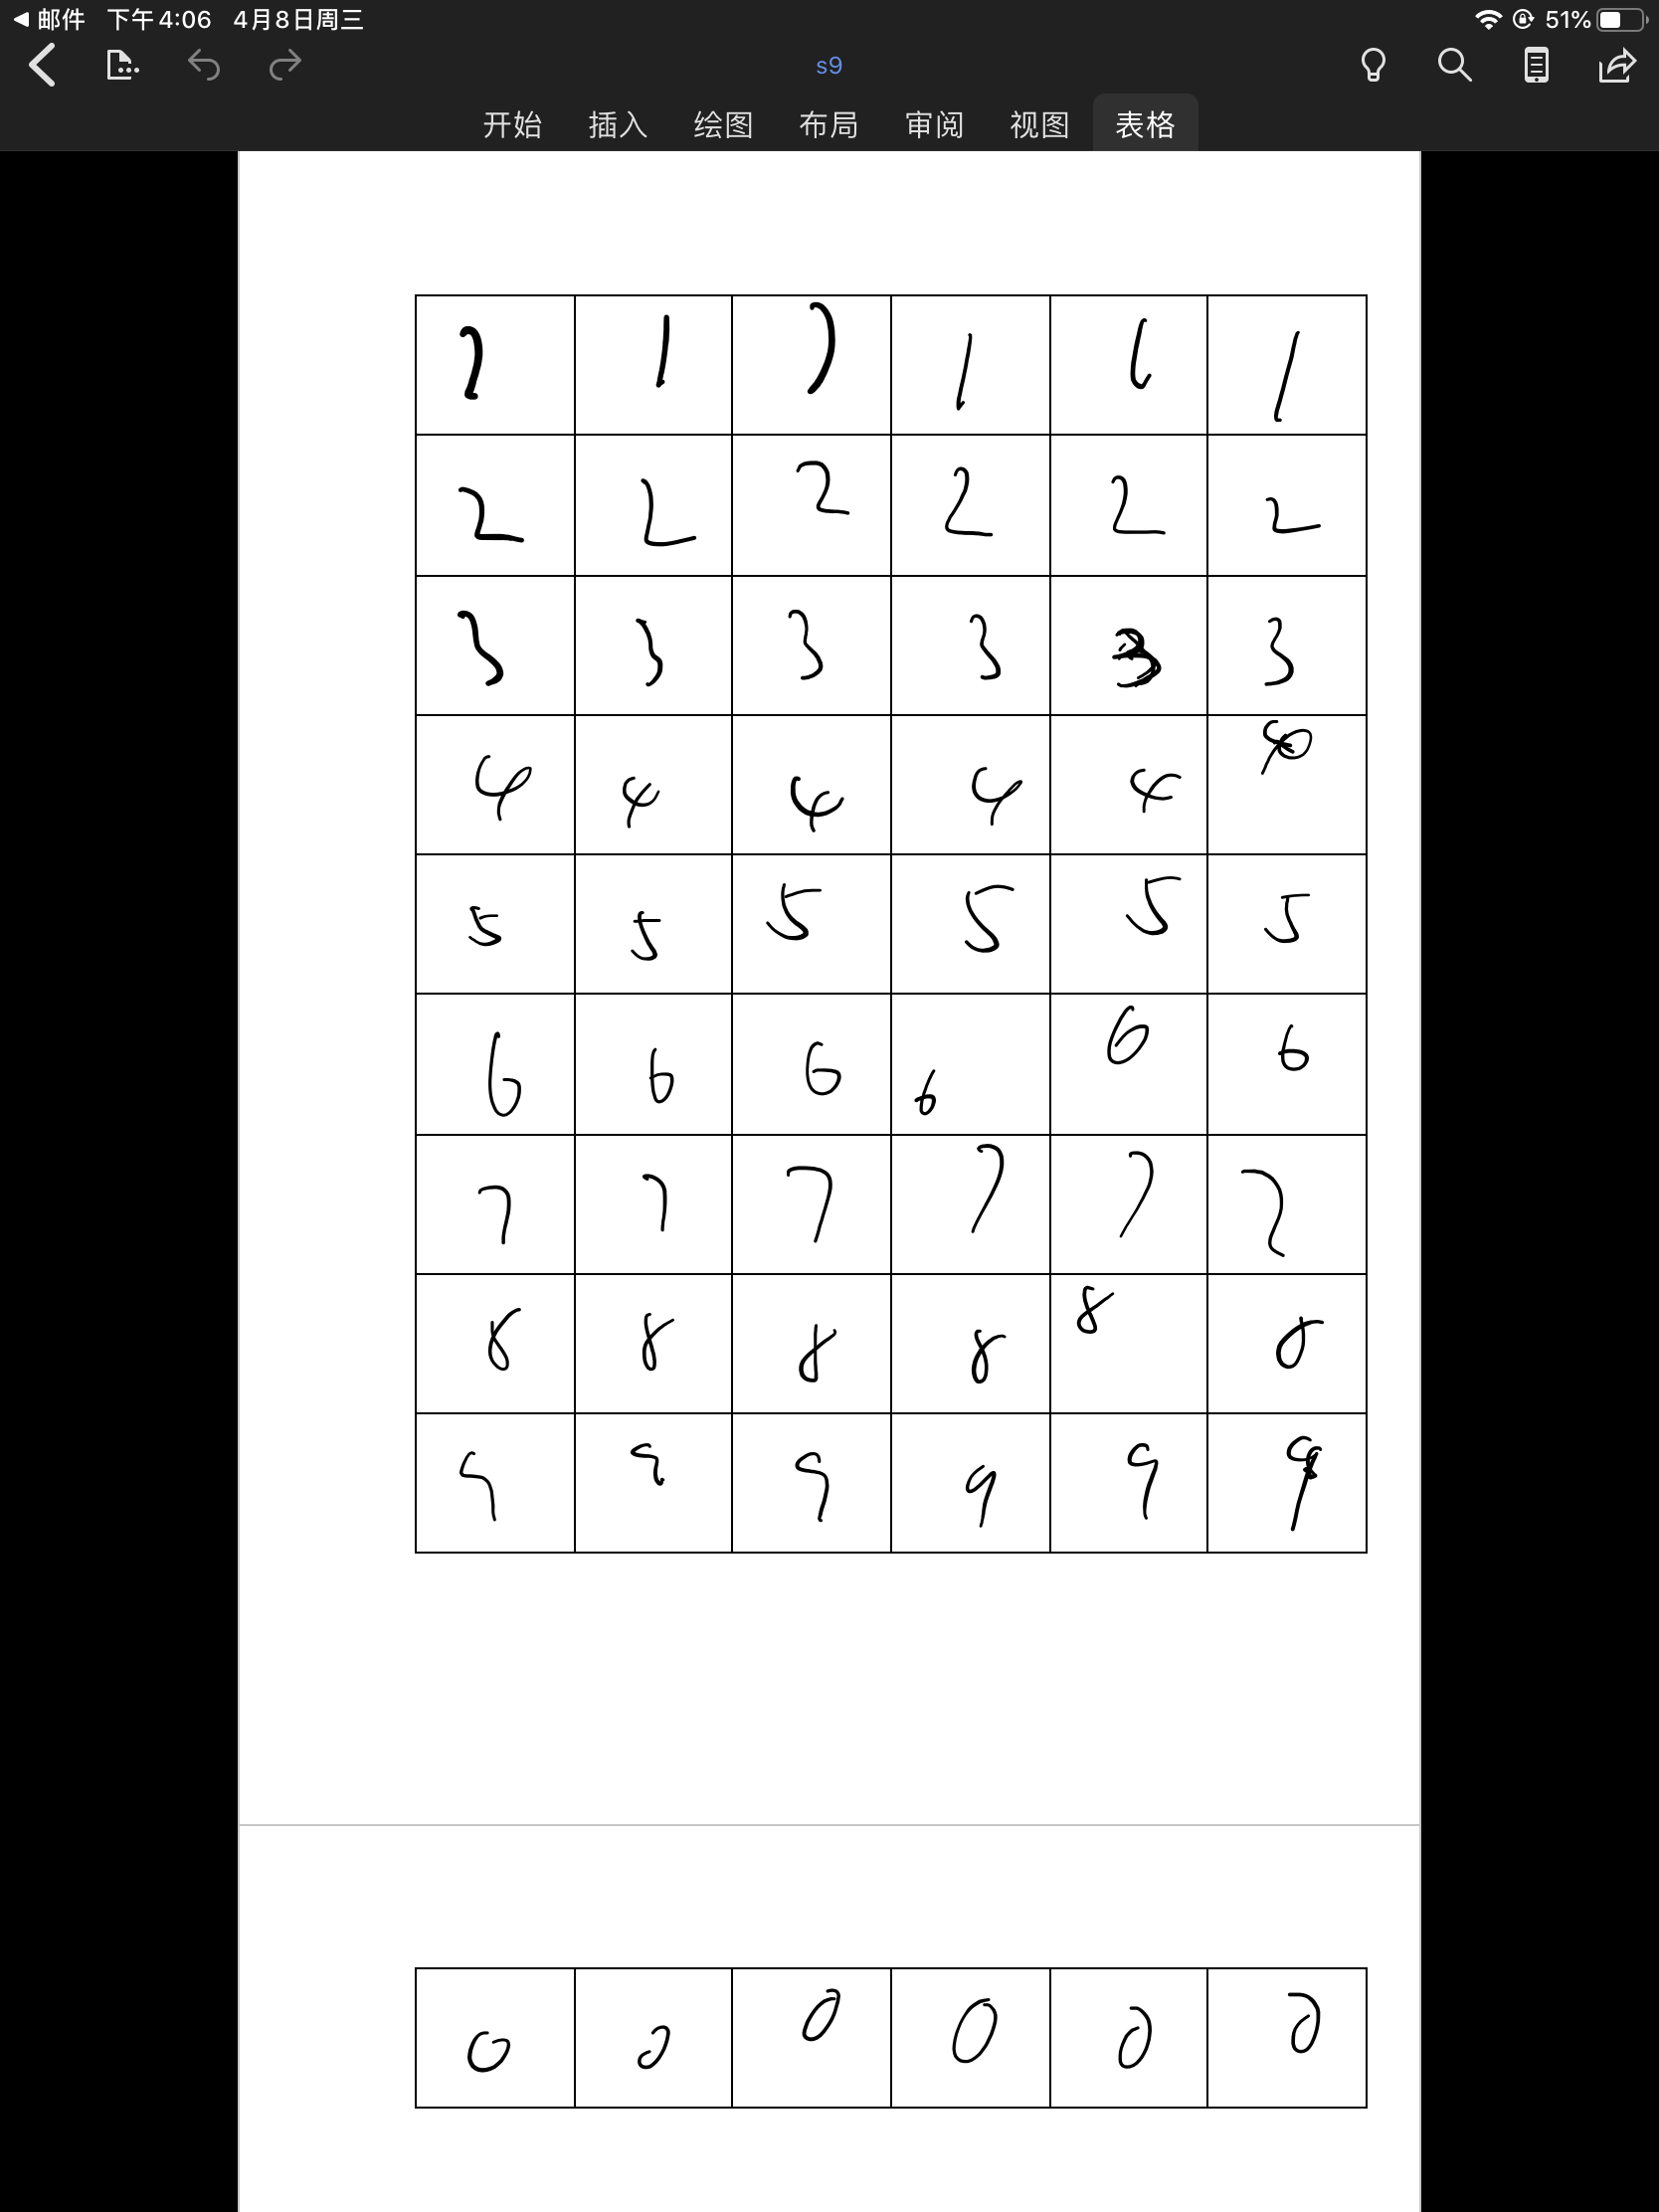 邮件 下午4:06 4月8日周三 51%
s9
开始 插入 绘图 布局 审阅 视图 表格
1 1 1 1 1 1
2 2 2 2 2 2
3 3 3 3 3 3
4 4 4 4 4 4
5 5 5 5 5 5
6 6 6 6 6 6
7 7 7 7 7 7
8 8 8 8 8 8
9 9 9 9 9 9
0 0 0 0 0 0